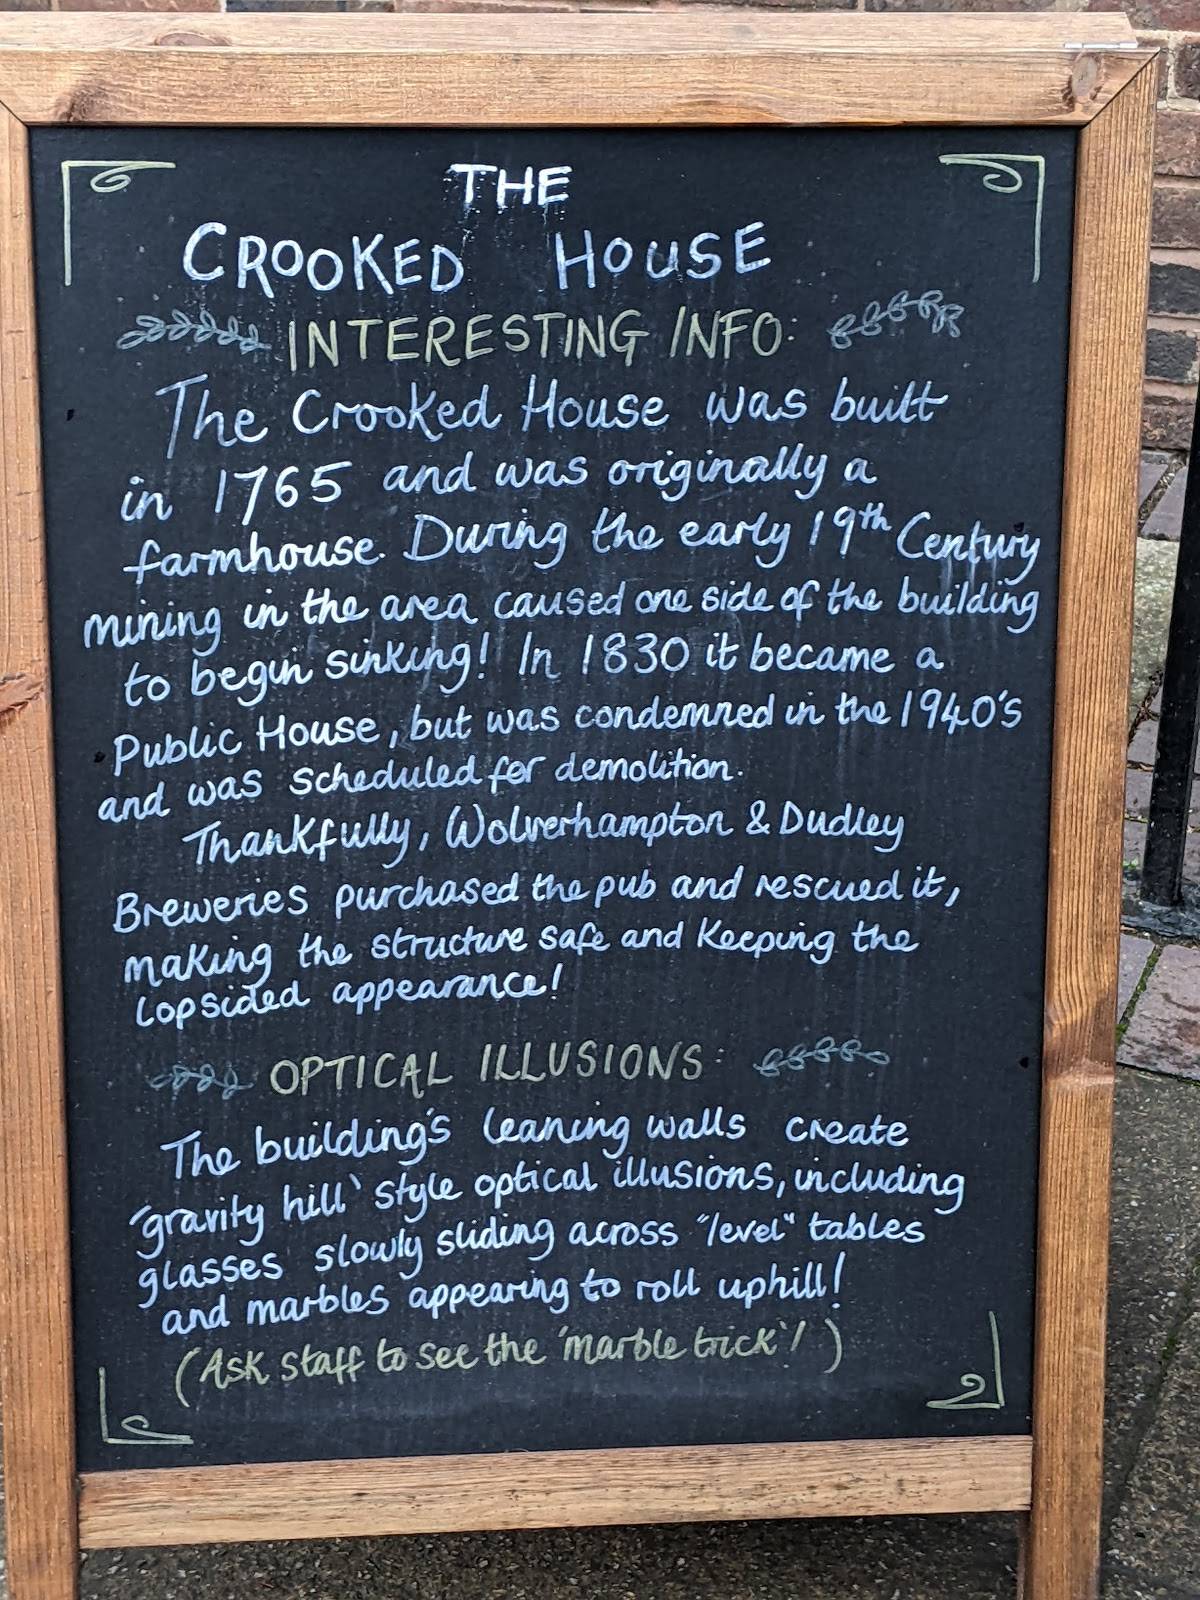 THE
CROOKED HOUSE
INTERESTING INFO:
The Crooked House was built
in 1765 and was originally a
farmhouse. During the early 19th Century
mining in the area caused one side of the building
to begin sinking! In 1830 it became a
Public House, but was condemned in the 1940's
and was scheduled for demolition.
Thankfully, Wolverhampton & Dudley
Breweries purchased the pub and rescued it,
making the structure safe and keeping the
lopsided appearance!
OPTICAL ILLUSIONS:
The building's leaning walls create
'gravity hill' style optical illusions, including
glasses slowly sliding across "level" tables
and marbles appearing to roll uphill!
(Ask staff to see the 'marble trick'!)